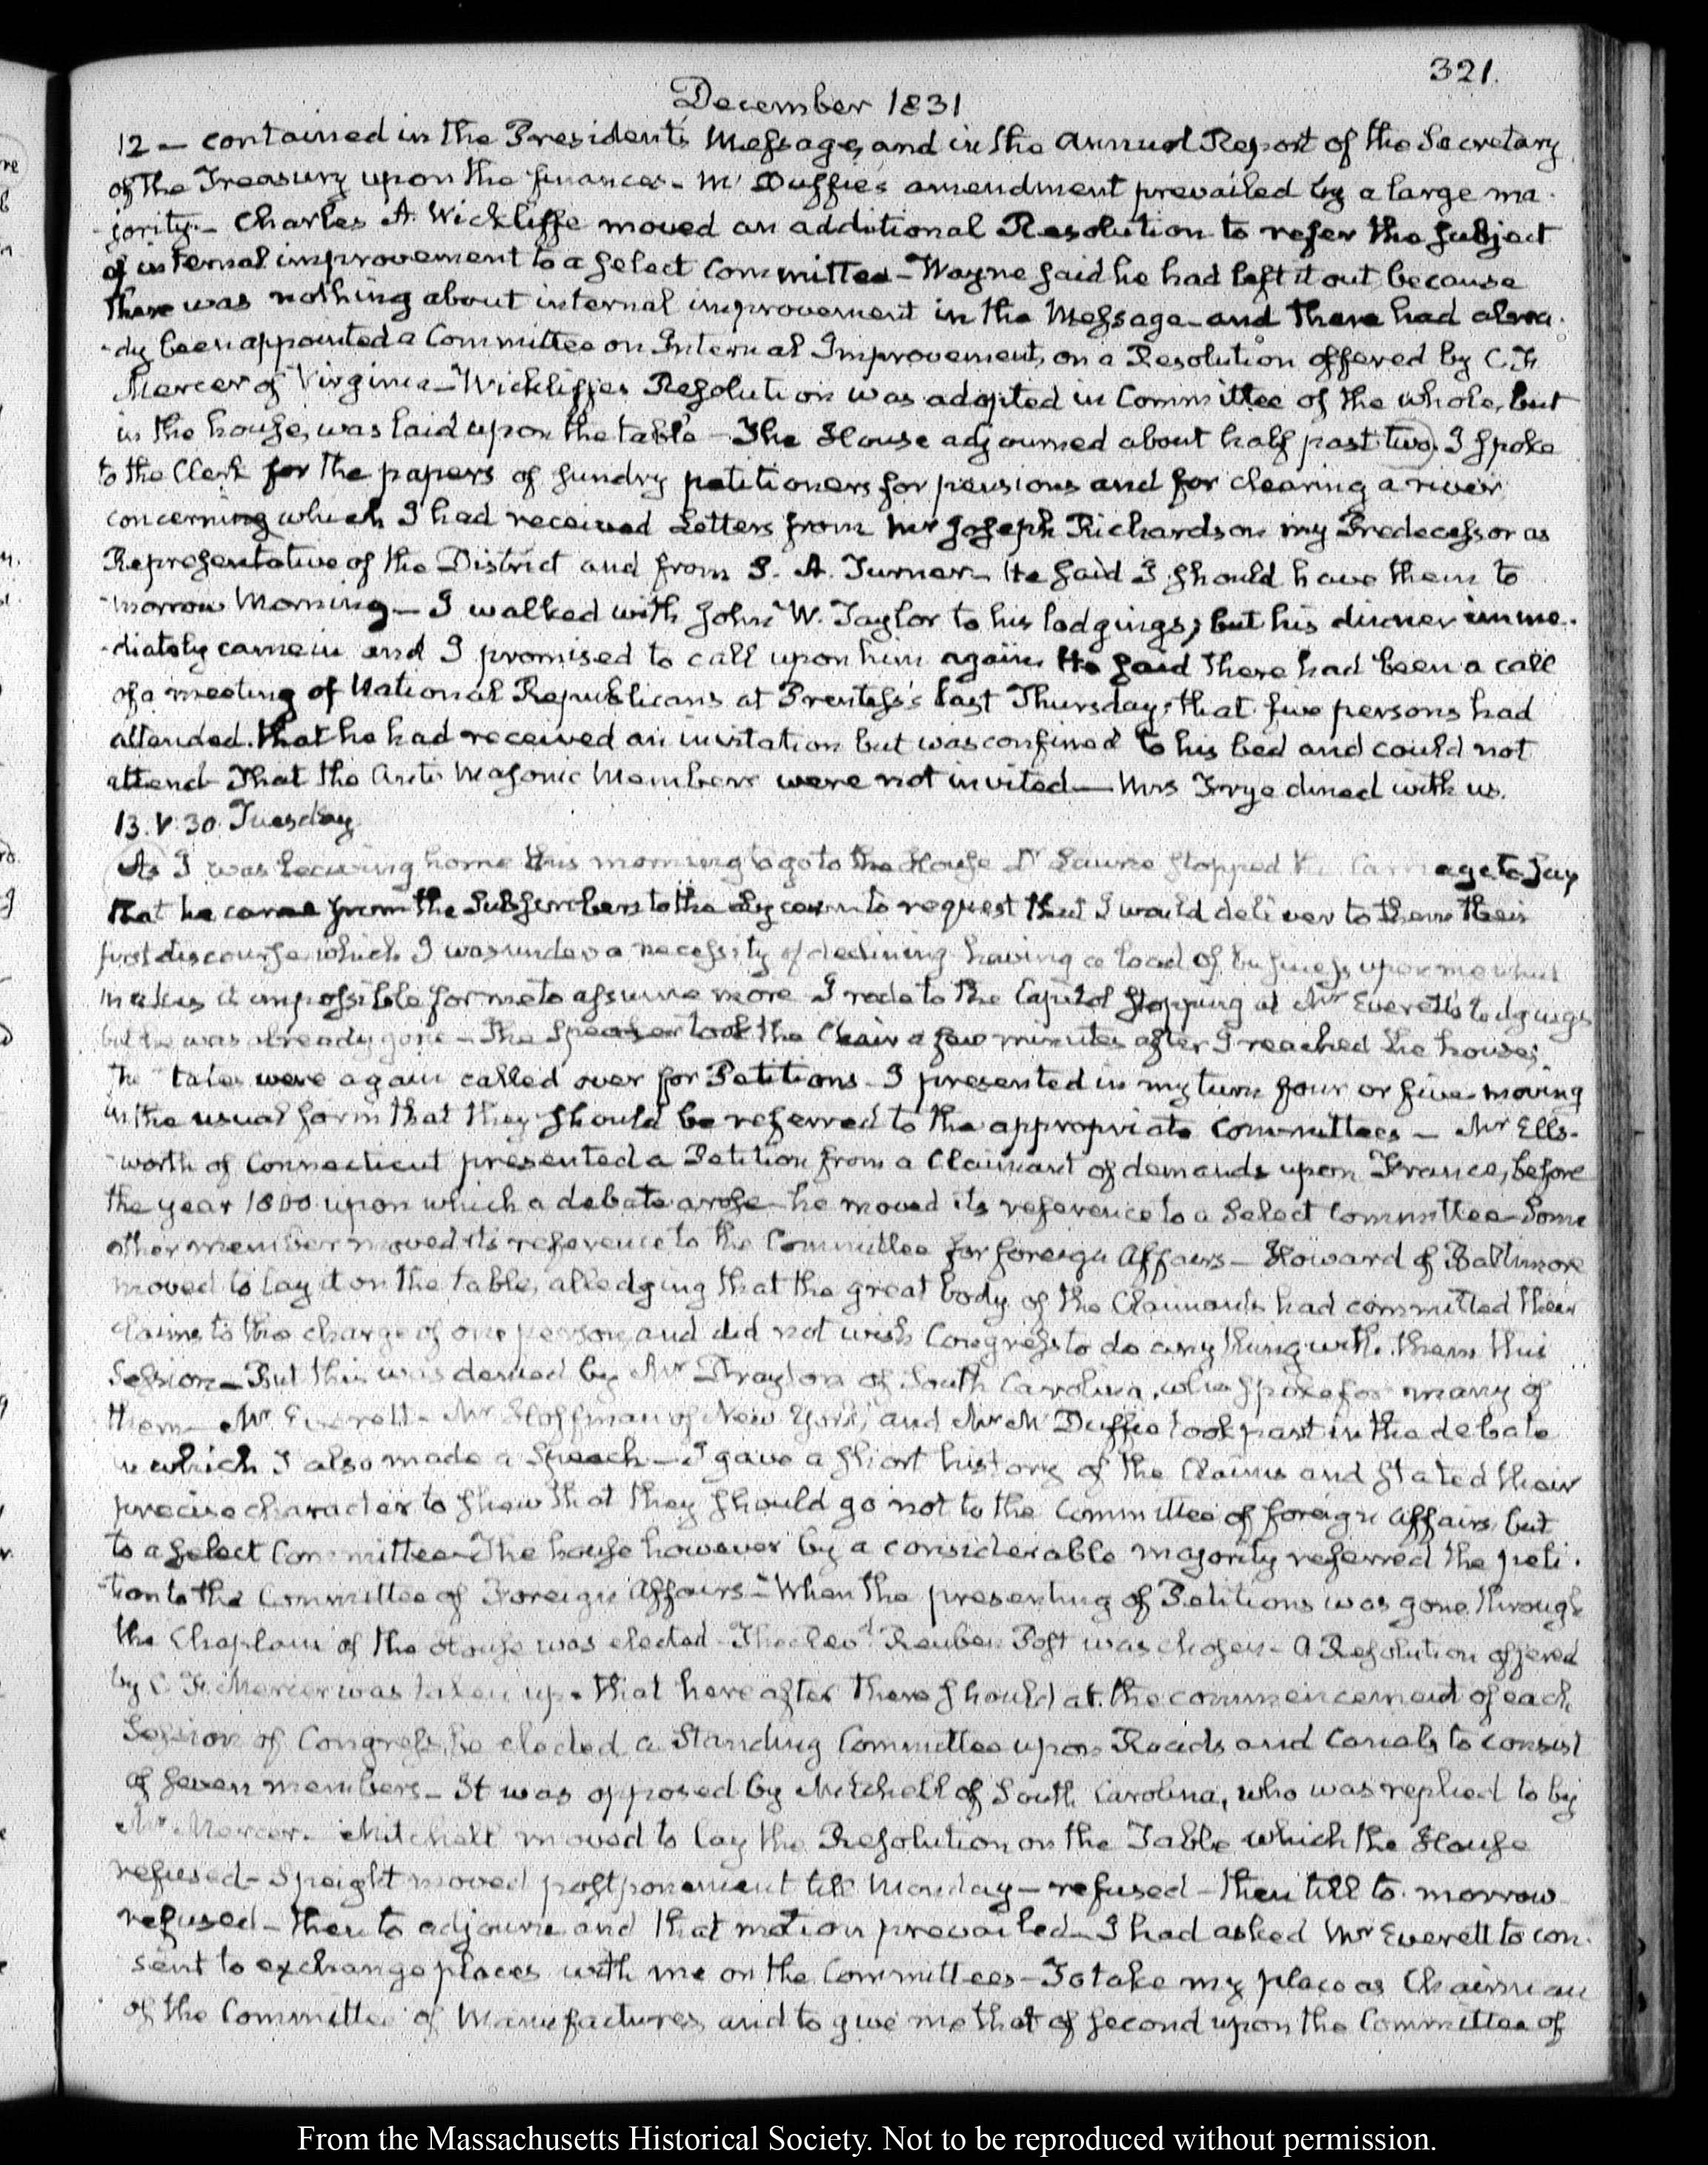 321.
December 1831
12 — contained in the President's Message, and in the Annual Report of the Secretary
of the Treasury upon the finances — Mc Duffie's amendment prevailed by a large ma-
-jority. — Charles A. Wickliffe moved an additional Resolution to refer the subject
of internal improvement to a select Committee — Wayne said he had left it out because
there was nothing about internal improvement in the Message — and there had alrea-
-dy been appointed a Committee on Internal Improvement, on a Resolution offered by C. F.
Mercer of Virginia — Wickliffe's Resolution was adopted in Committee of the whole, but
in the house, was laid upon the table — The House adjourned about half past two. I spoke
to the Clerk for the papers of sundry petitioners for pensions and for clearing a river
concerning which I had received Letters from Mr Joseph Richardson my Predecessor as
Representative of the District and from S. A. Turner — He said I should have them to
-morrow Morning — I walked with John W. Taylor to his lodgings; but his dinner imme-
-diately came in and I promised to call upon him again. He said there had been a call
of a meeting of National Republicans at Prentiss's last Thursday; that five persons had
attended. that he had received an invitation but was confined to his bed and could not
attend — That the Anti-Masonic Members were not invited — Mrs Frye dined with us.
13. V. 30. Tuesday.
As I was leaving home this morning to go to the House Dr Laurie stopped the Carriage to say
that he came from the Subscribers to the Lyceum to request that I would deliver to them their
first discourse, which I was under a necessity of declining having a load of business upon me which
makes it impossible for me to assume more. I rode to the Capitol stopping at Mr Everett's lodgings
but he was already gone — The Speaker took the Chair a few minutes after I reached the house;
The States were again called over for Petitions — I presented in my turn four or five — moving
in the usual form that they should be referred to the appropriate Committees — Mr Ells-
-worth of Connecticut presented a Petition from a Claimant of demands upon France, before
the year 1800 upon which a debate arose — he moved its reference to a Select Committee — Some
other member moved its reference to the Committee for foreign Affairs — Howard of Baltimore
moved to lay it on the table, alledging that the great body of the Claimants had committed their
claims to the charge of one person, and did not wish Congress to do any thing with them this
Session — But this was denied by Mr Drayton of South Carolina, who spoke for many of
them — Mr. Everett — Mr Hoffman of New York, and Mr Mc Duffie took part in the debate
in which I also made a Speech — I gave a short history of the Claims and stated their
precise character to shew that they should go not to the Committee of foreign Affairs, but
to a select Committee — The house however by a considerable majority referred the peti-
-tion to the Committee of Foreign Affairs — When the presenting of Petitions was gone through
the Chaplain of the House was elected — The Revd Reuben Post was chosen — A Resolution offered
by C. F. Mercer was taken up — that hereafter there should at the commencement of each
Session of Congress, be elected a Standing Committee upon Roads and Canals to consist
of seven members — It was opposed by Mitchell of South Carolina, who was replied to by
Mr Mercer. Mitchell moved to lay the Resolution on the Table which the House
refused — Speight moved postponement till Monday — refused — then till to-morrow
refused — then to adjourn and that motion prevailed — I had asked Mr Everett to con-
sent to exchange places with me on the Committees — To take my place as Chairman
of the Committee of Manufactures, and to give me that of second upon the Committee of
From the Massachusetts Historical Society. Not to be reproduced without permission.